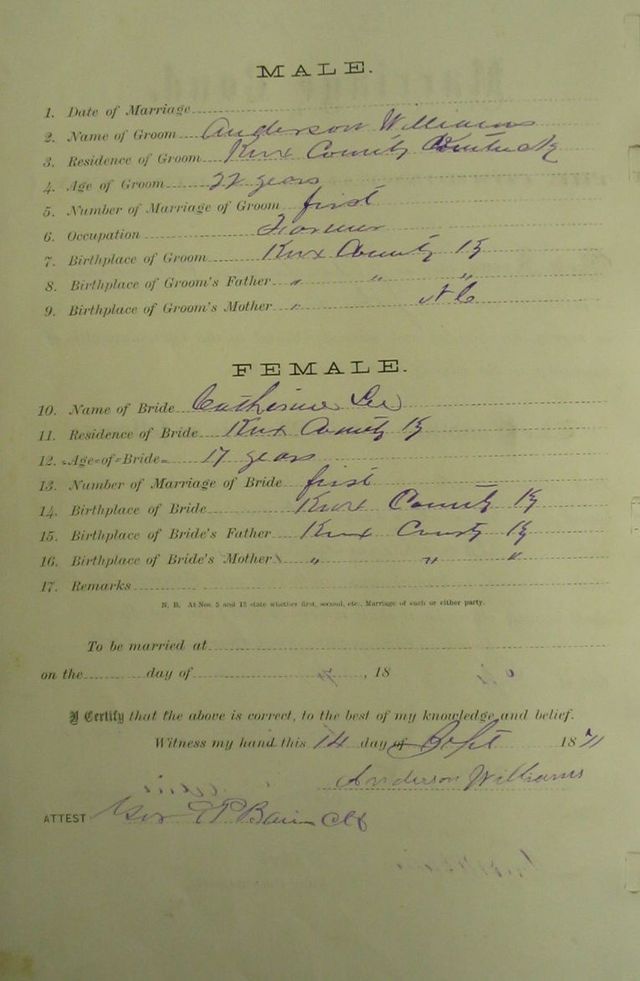 MALE.
1. Date of Marriage
2. Name of Groom Anderson Williams
3. Residence of Groom Knox County Kentucky
4. Age of Groom 22 years
5. Number of Marriage of Groom first
6. Occupation Farmer
7. Birthplace of Groom Knox County Ky
8. Birthplace of Groom's Father " " "
9. Birthplace of Groom's Mother " N C
FEMALE.
10. Name of Bride Catherine Lee
11. Residence of Bride Knox County Ky
12. Age of Bride 17 years
13. Number of Marriage of Bride first
14. Birthplace of Bride Knox County Ky
15. Birthplace of Bride's Father Knox County Ky
16. Birthplace of Bride's Mother " " "
17. Remarks
N. B. At Nos. 5 and 13 state whether first, second, etc., Marriage of each or either party.
To be married at
on the day of , 18
I Certify that the above is correct, to the best of my knowledge and belief.
Witness my hand this 14 day of Sept 1871
Anderson Williams
ATTEST